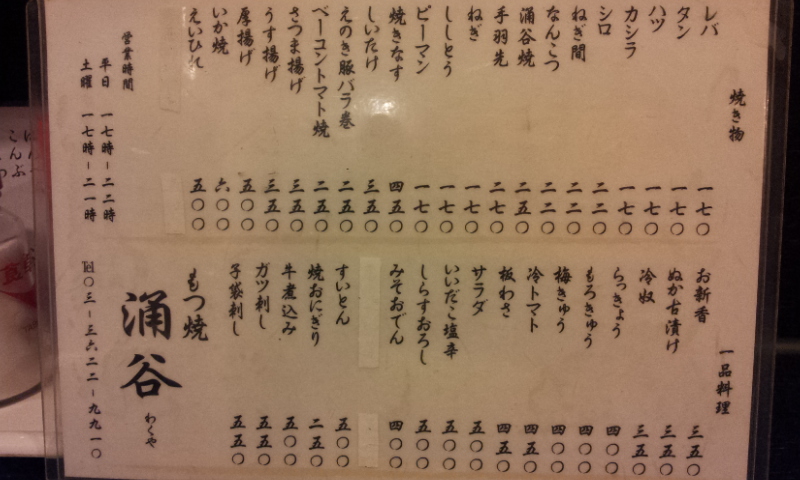 焼き物
レバ 一七〇
タン 一七〇
ハツ 一七〇
カシラ 一七〇
シロ 二二〇
ねぎ間 二二〇
なんこつ 二二〇
涌谷焼 二五〇
手羽先 二七〇
ねぎ 一七〇
ししとう 一七〇
ピーマン 一七〇
焼きなす 四五〇
しいたけ 三五〇
えのき豚バラ巻 二五〇
ベーコントマト焼 二五〇
さつま揚げ 三五〇
うす揚げ 三五〇
厚揚げ 五〇〇
いか焼 六〇〇
えいひれ 五〇〇
一品料理
お新香 三五〇
ぬか古漬け 三五〇
冷奴 三五〇
らっきょう 四〇〇
もろきゅう 四〇〇
梅きゅう 四〇〇
冷トマト 四五〇
板わさ 四五〇
サラダ 五〇〇
いいだこ塩辛 五〇〇
しらすおろし 五〇〇
みそおでん 四〇〇
すいとん 五〇〇
焼おにぎり 二五〇
牛煮込み 五〇〇
ガツ刺し 五五〇
子袋刺し 五五〇
もつ焼
涌谷
わくや
営業時間
平日 一七時－二二時
土曜 一七時－二一時
℡〇三－三六二二－九九一〇
こんぶ